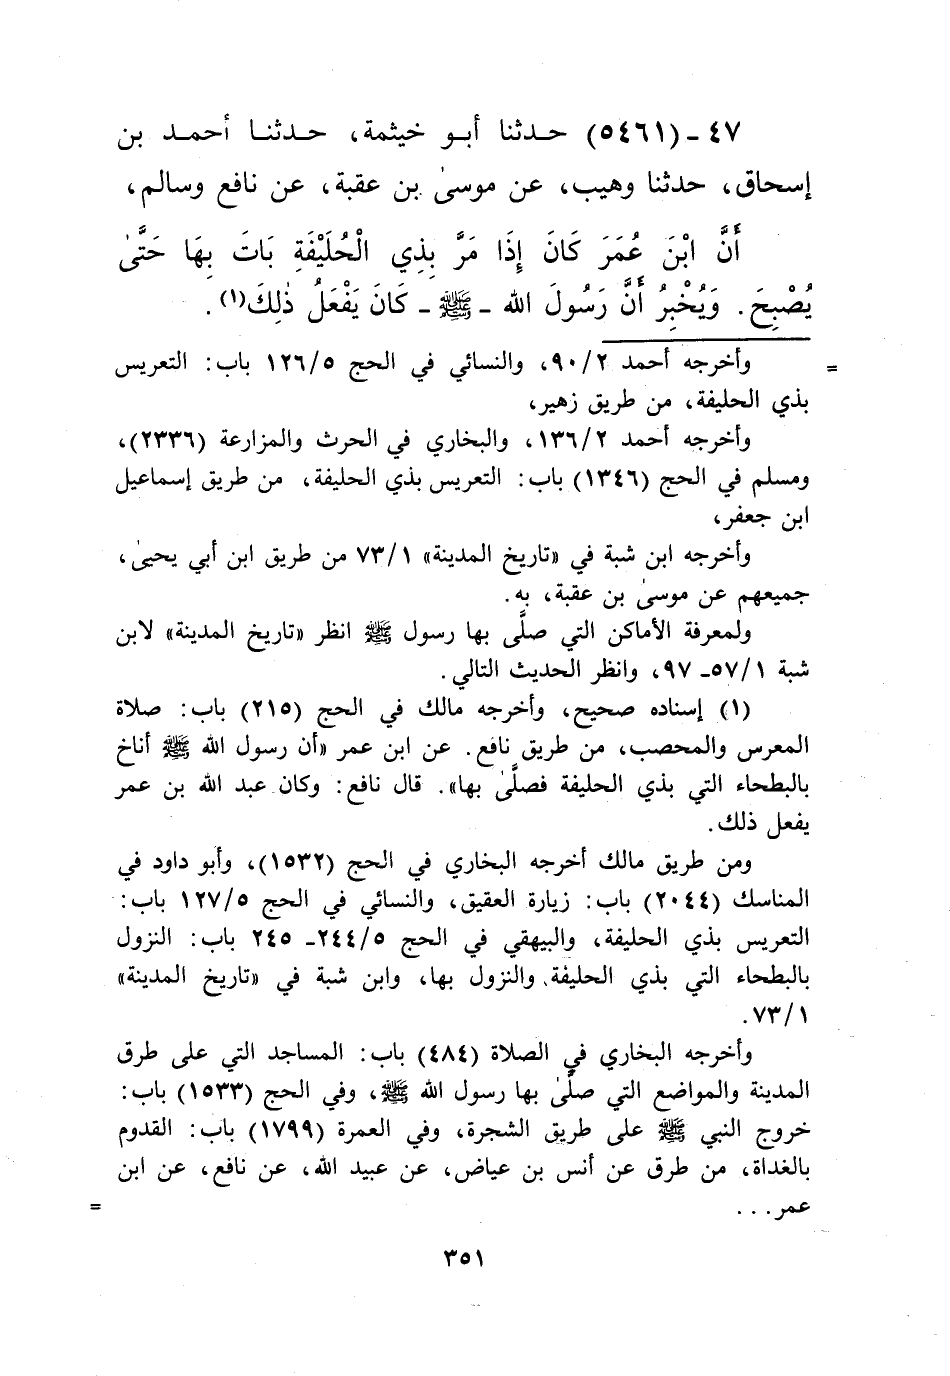 ٤٧ - (٥٤٦١) حـدثنا أبـو خيثمة، حـدثنـا أحمـد بن
إسحاق، حدثنا وهيب، عن موسىٰ بن عقبة، عن نافع وسالم،
أَنَّ ابْنَ عُمَرَ كَانَ إِذَا مَرَّ بِذِي الْحُلَيْفَةِ بَاتَ بِهَا حَتَّىٰ
يُصْبِحَ. وَيُخْبِرُ أَنَّ رَسُولَ الله - ﷺ - كَانَ يَفْعَلُ ذٰلِكَ(١).
= وأخرجه أحمد ٩٠/٢، والنسائي في الحج ١٢٦/٥ باب: التعريس
بذي الحليفة، من طريق زهير،
وأخرجه أحمد ١٣٦/٢، والبخاري في الحرث والمزارعة (٢٣٣٦)،
ومسلم في الحج (١٣٤٦) باب: التعريس بذي الحليفة، من طريق إسماعيل
ابن جعفر،
وأخرجه ابن شبة في «تاريخ المدينة» ٧٣/١ من طريق ابن أبي يحيىٰ،
جميعهم عن موسىٰ بن عقبة، به.
ولمعرفة الأماكن التي صلَّى بها رسول ﷺ انظر «تاريخ المدينة» لابن
شبة ٥٧/١ - ٩٧، وانظر الحديث التالي.
(١) إسناده صحيح، وأخرجه مالك في الحج (٢١٥) باب: صلاة
المعرس والمحصب، من طريق نافع. عن ابن عمر «أن رسول الله ﷺ أناخ
بالبطحاء التي بذي الحليفة فصلَّىٰ بها». قال نافع: وكان عبد الله بن عمر
يفعل ذلك.
ومن طريق مالك أخرجه البخاري في الحج (١٥٣٢)، وأبو داود في
المناسك (٢٠٤٤) باب: زيارة العقيق، والنسائي في الحج ١٢٧/٥ باب:
التعريس بذي الحليفة، والبيهقي في الحج ٢٤٤/٥ - ٢٤٥ باب: النزول
بالبطحاء التي بذي الحليفة والنزول بها، وابن شبة في «تاريخ المدينة»
٧٣/١.
وأخرجه البخاري في الصلاة (٤٨٤) باب: المساجد التي على طرق
المدينة والمواضع التي صلَّىٰ بها رسول الله ﷺ، وفي الحج (١٥٣٣) باب:
خروج النبي ﷺ على طريق الشجرة، وفي العمرة (١٧٩٩) باب: القدوم
بالغداة، من طرق عن أنس بن عياض، عن عبيد الله، عن نافع، عن ابن
عمر... =
٣٥١